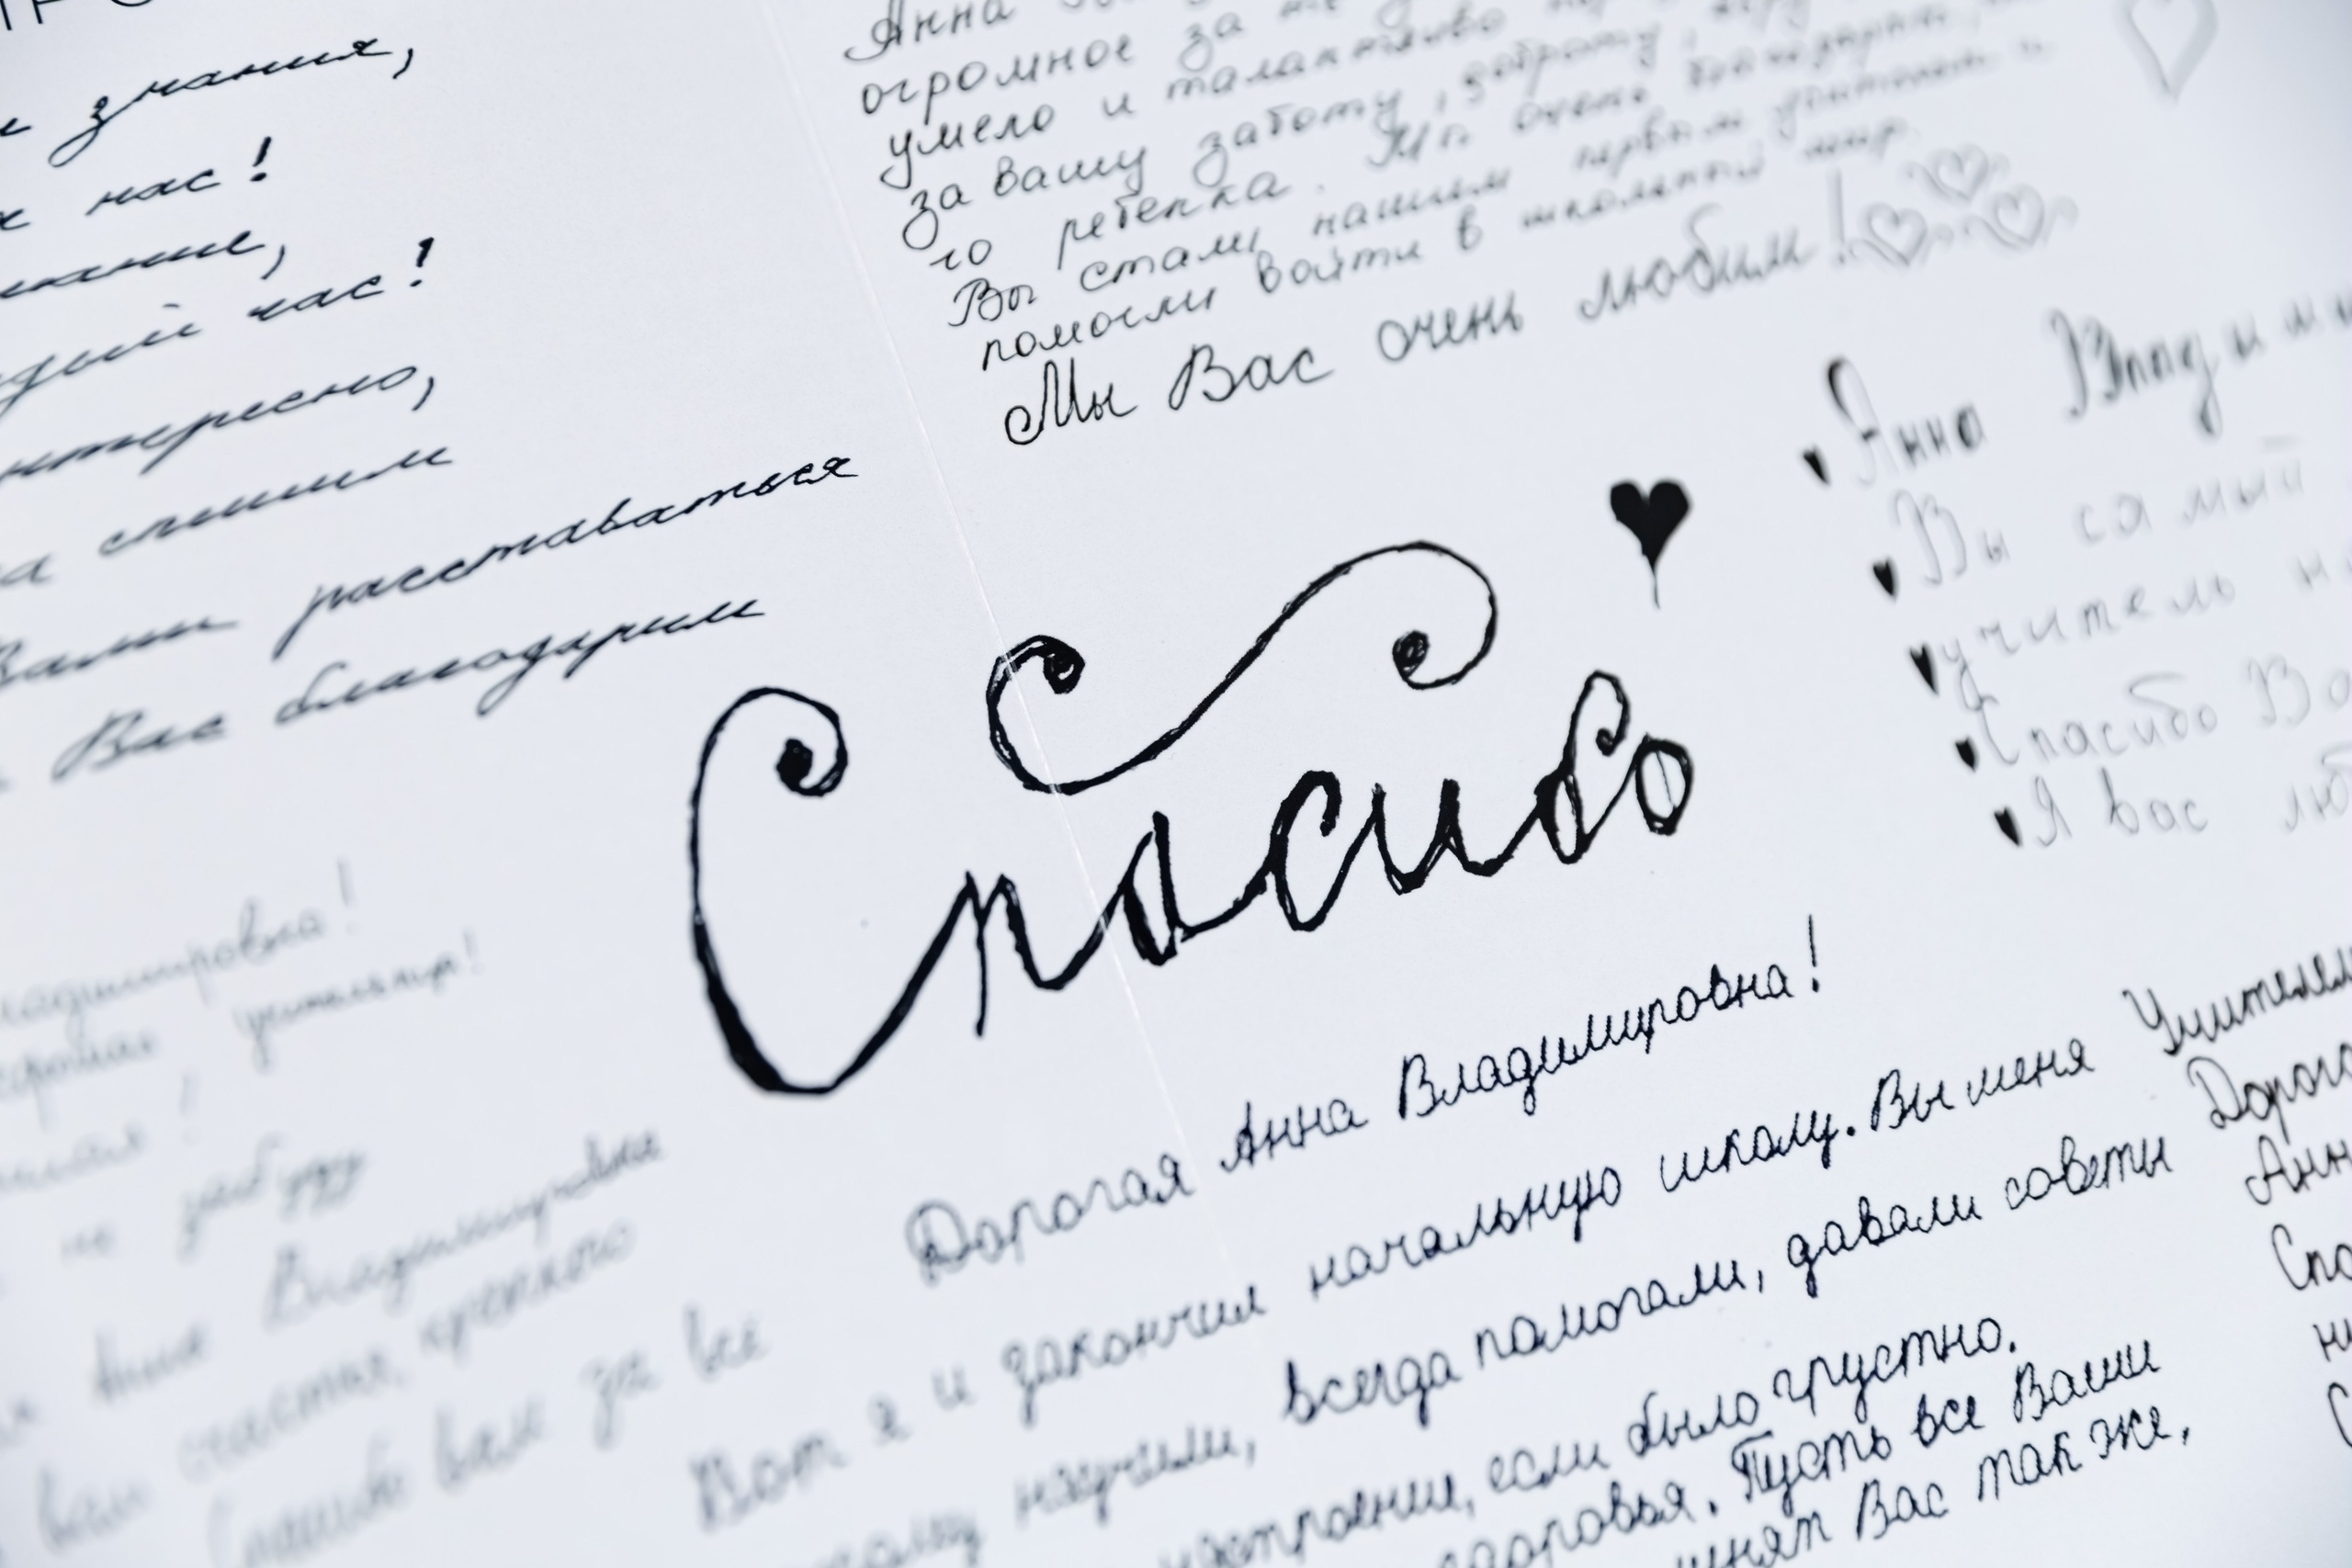 знания,
нас!
час!
интересно,
слышим
Вами расставаться
Вас благодарим
Анна
огромное за
умело и талантливо
за вашу заботу, доброту,
го ребенка. Мы очень благодарны,
Вы стали нашим первым учителем и
помогли войти в школьный мир.
Мы Вас очень любим!
Анна Влади
Вы самый
учитель на
Спасибо Ва
Я вас лю
Спасибо
ладимировна!
хорошая учительница!
не забуду
Анна Владимировна
вам счастья, крепкого
Спасибо вам за все
Дорогая Анна Владимировна!
Вот я и закончил начальную школу. Вы меня
научили, всегда помогали, давали советы
настроение, если было грустно.
здоровья. Пусть все Ваши
Вас так же,
Учителем
Дорого
Анн
Спа